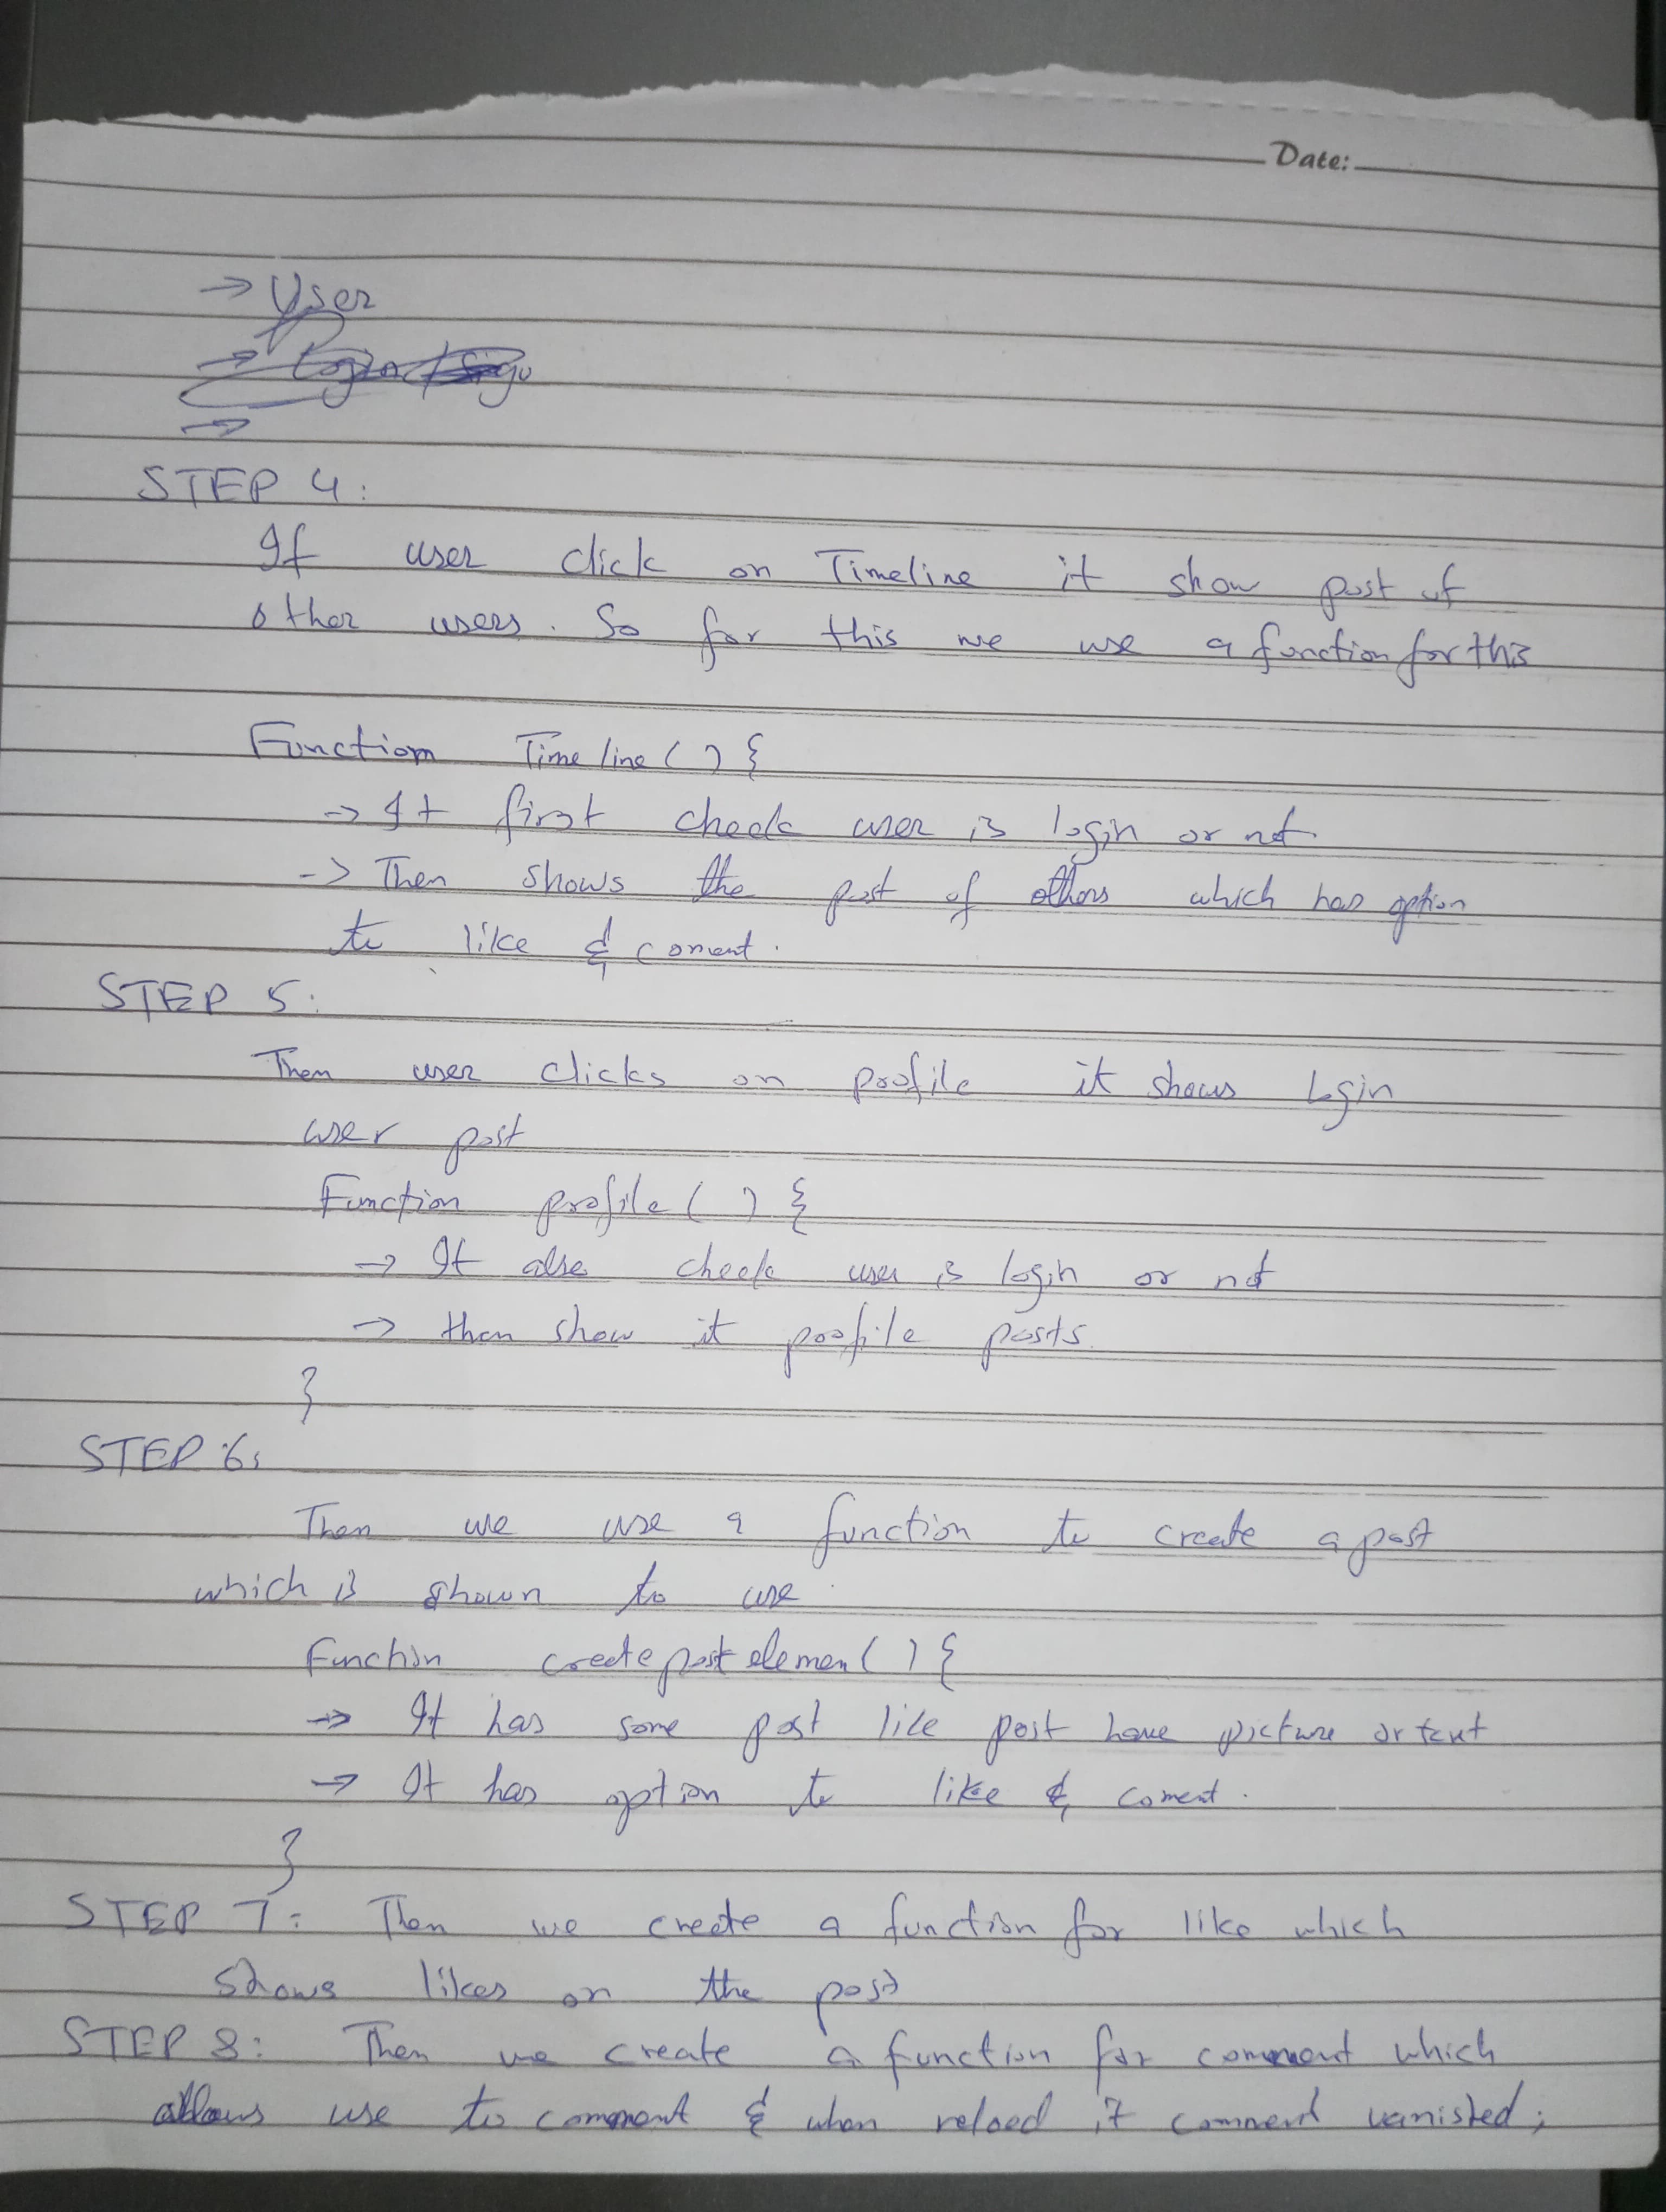 Date:
→ User
→
STEP 4:
If user click on Timeline it show post of
other users. So for this we use a function for this
Function Timeline ( ) {
→ It first check user is login or not.
-> Then shows the post of others which has option
to like & coment.
STEP 5:
Then user clicks on profile it shows Login
user post
Function profile ( ) {
→ It also check user is login or not
→ then show it profile posts.
}
STEP 6:
Then we use a function to create a post
which is shown to use.
Function createpost elemen ( ) {
→ It has some post like post have picture or text
→ It has option to like & coment.
}
STEP 7: Then we create a function for like which
shows likes on the post
STEP 8: Then we create a function for comment which
allows use to comment & when reload it comment vanished;